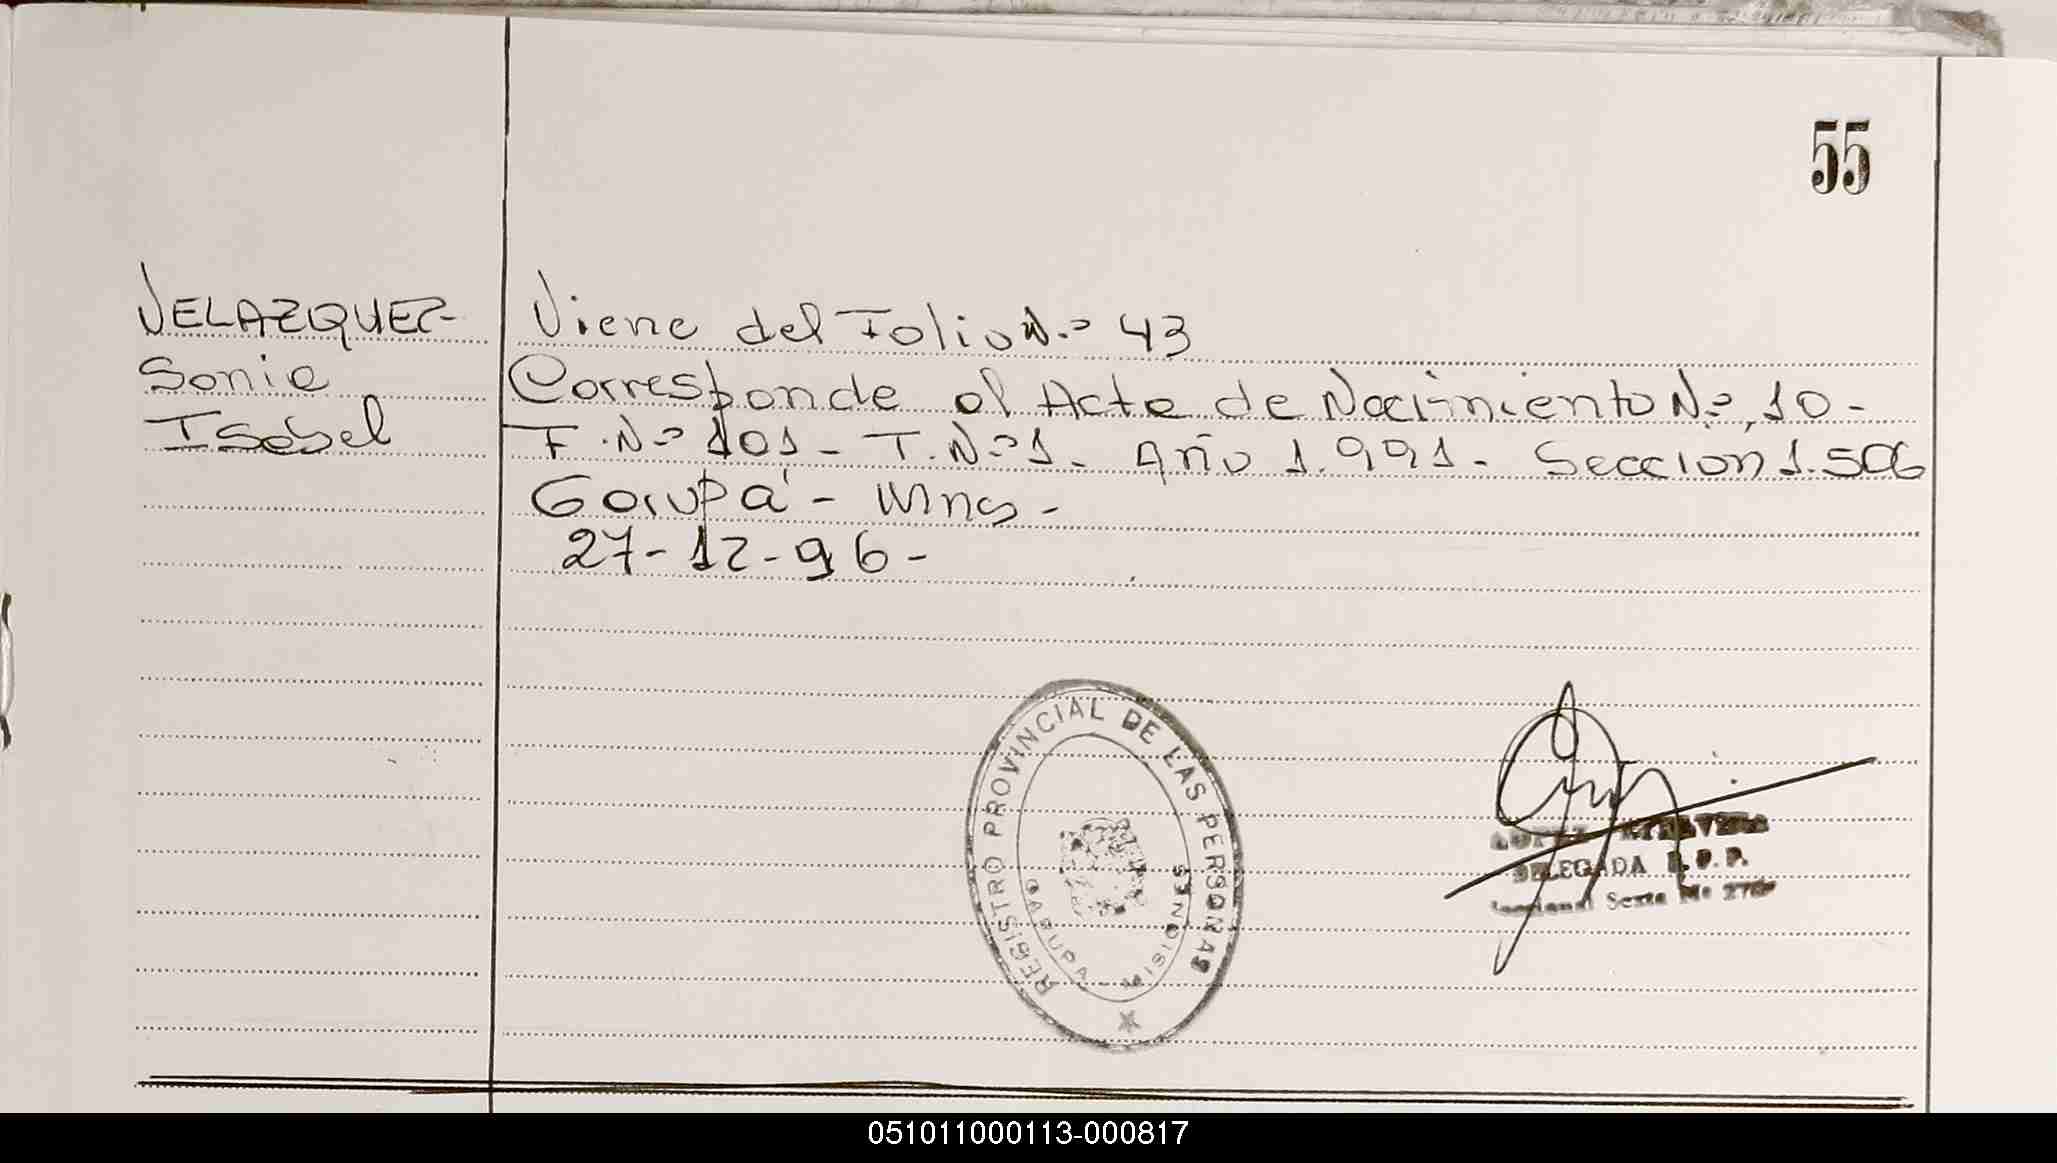 55
VELAZQUEZ-
Sonia
Isabel
Viene del Folio N.º 43
Corresponde al Acta de Nacimiento N.º 10-
F.Nº 101- T.Nº1- Año 1.991- Sección 1.506
Garupá - Mnes -
27-12-96-
REGISTRO PROVINCIAL DE LAS PERSONAS
GARUPA - MISIONES
DELEGADA R.P.P.
Sexta Nº
051011000113-000817